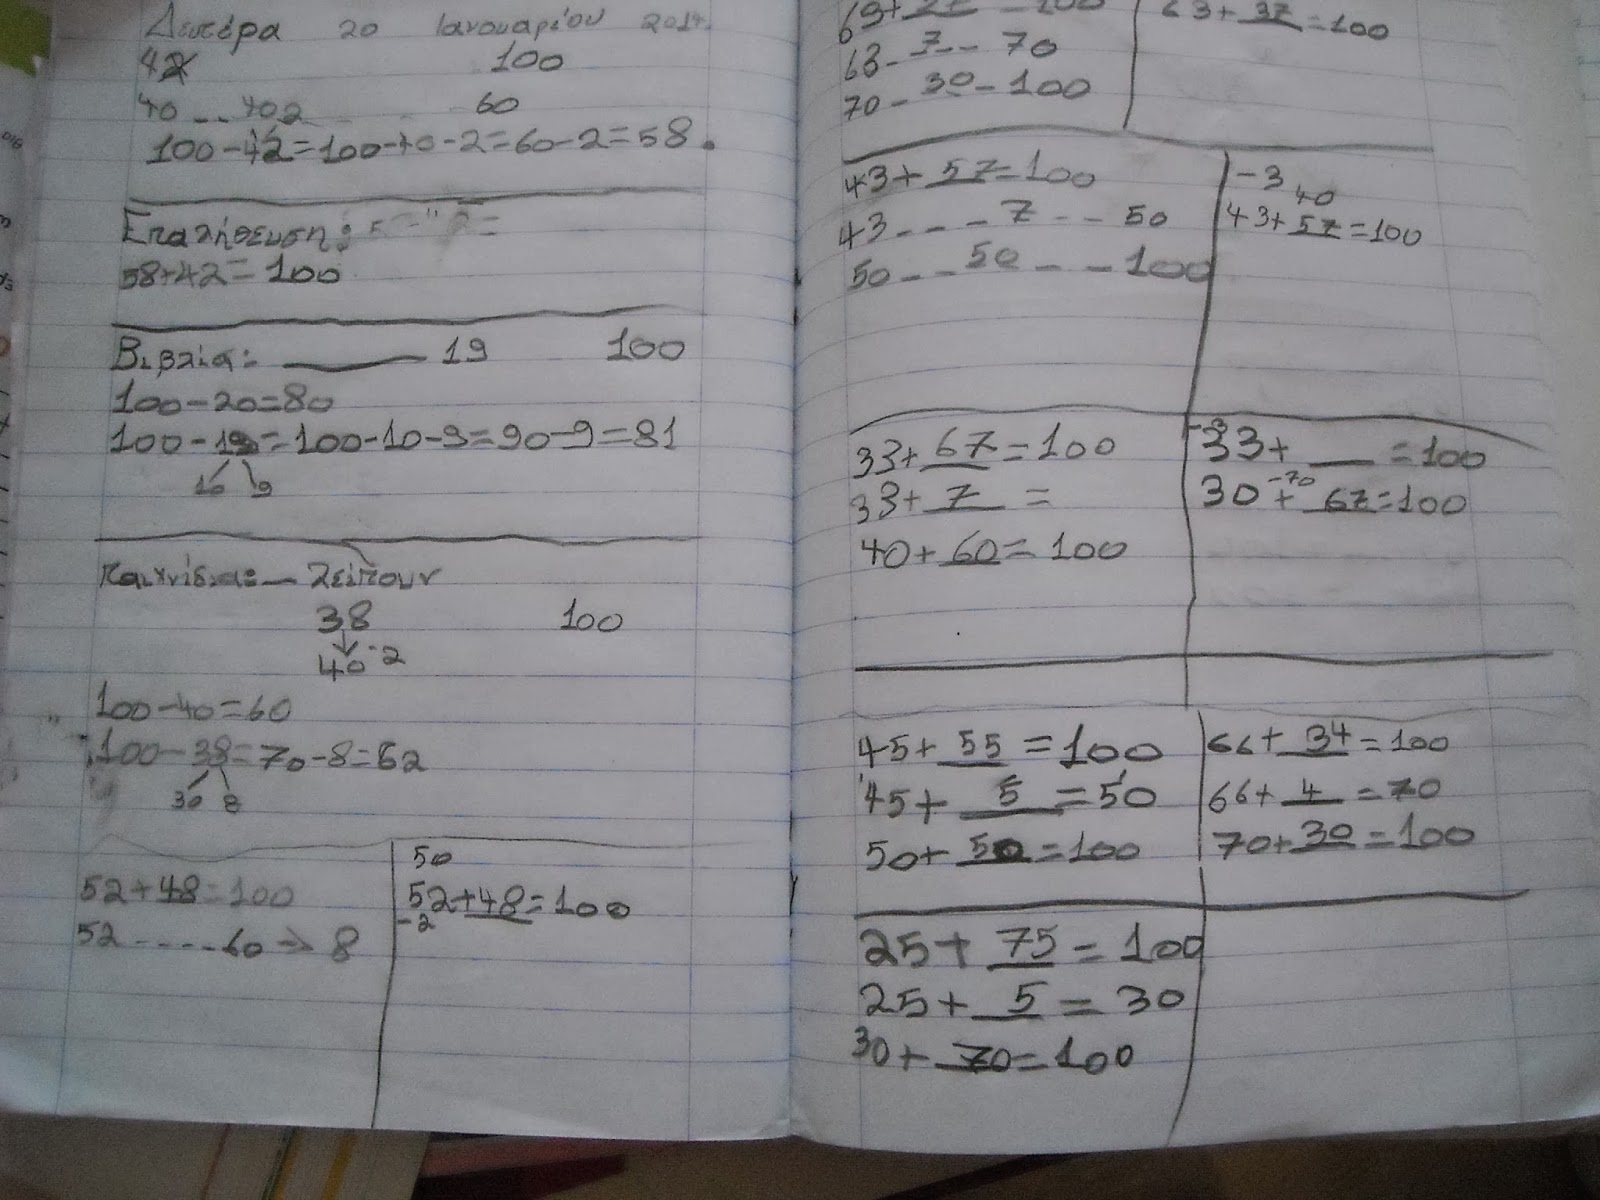 Δευτέρα 20 Ιανουαρίου 2014.
42 100
40 - - 402 60
100-42=100-40-2=60-2=58.
Επαλήθευση:
58+42=100
Βιβλία: 19 100
100-20=80
100-19=100-10-9=90-9=81
10 9
Παιχνίδια: Λείπουν
38 100
40 -2
100-40=60
100-38=70-8=62
30 8
52+48=100
52 - - - - 60 → 8
50
52+48=100
-2
63+37=100
63- 7 - - 70
70- 30 -100
63+37=100
43+57=100
43- - - 7 - - 50
50 - - 50 - - 100
-3 40
43+57=100
33+67=100
33+ 7 =
40+60=100
-3
33+ __ =100
-70
30 + 67=100
45+55=100
45+ 5 =50
50+50=100
66+34=100
66+4=70
70+30=100
25+75=100
25+5=30
30+70=100